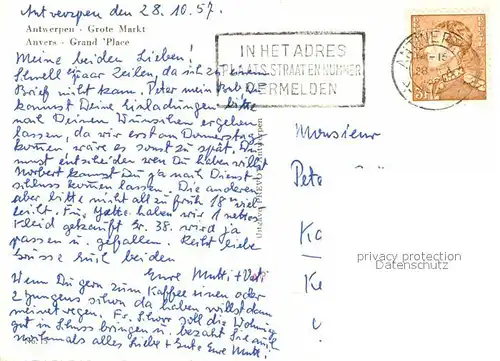 Antwerpen den 28.10.57.
Antwerpen - Grote Markt
Anvers - Grand 'Place
Meine beiden Lieben!
Schnell paar Zeilen, da ich zu einem
Brief nicht kam. Peter mein Du
kannst Deine Einladungen bitte
nach Deinen Wünschen ergehen
lassen, da wir erst am Donnerstag
kommen wäre es sonst zu spät. Du
must entscheiden wen Du haben willst
Norbert kannst Du ja nach Dienst
schluss kommen lassen. Die anderen
aber bitte nicht all zu früh 18
leicht. Für haben wir 1 nettes
Kleid gekauft Gr. 38. wird ja
passen u. gefallen. Recht liebe
Grüsse Euch beiden
Eure Mutti + Vati
Wenn Du gern zum Kaffee einen oder
2 Jungens schon da haben willst dann
meinetwegen. Fr. soll die Wohnung
gut in Schuss bringen u. bezahl Sie auch
nochmals alles Liebe + Gute Eure Mutti.
IN HET ADRES
PLAATS, STRAAT EN NUMMER
VERMELDEN
ANTWERPEN
Monsieur
Pete
privacy protection
Datenschutz